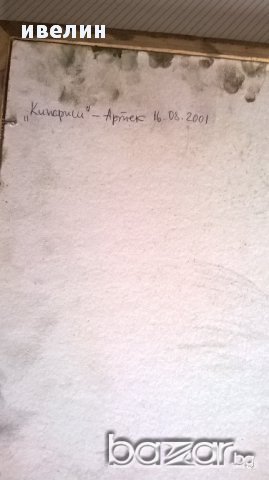 ивелин
„Кипариси“ – Артек 16.08.2001
bazar.bg